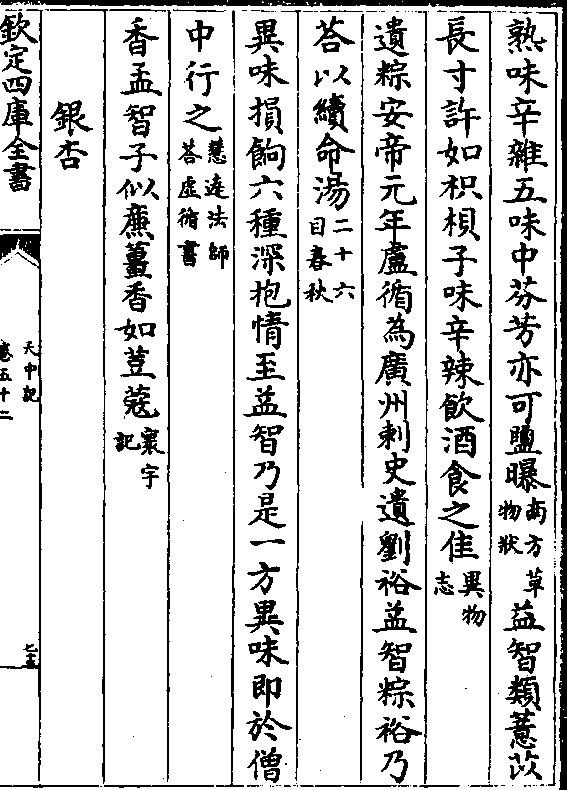 熟味辛雜五味中芬芳亦可鹽曝南方草物狀益智類薏苡
長寸許如枳椇子味辛辣飲酒食之佳異物志
遺粽安帝元年盧循為廣州刺史遺劉裕益智粽裕乃
荅以續命湯二十六目春秋
異味損餉六種深抱情至益智乃是一方異味即於僧
中行之慧遠法師荅盧循書
香孟智子似廉薑香如荳蔻寰宇記
銀杏
欽定四庫全書
天中記
卷五十二
七十五